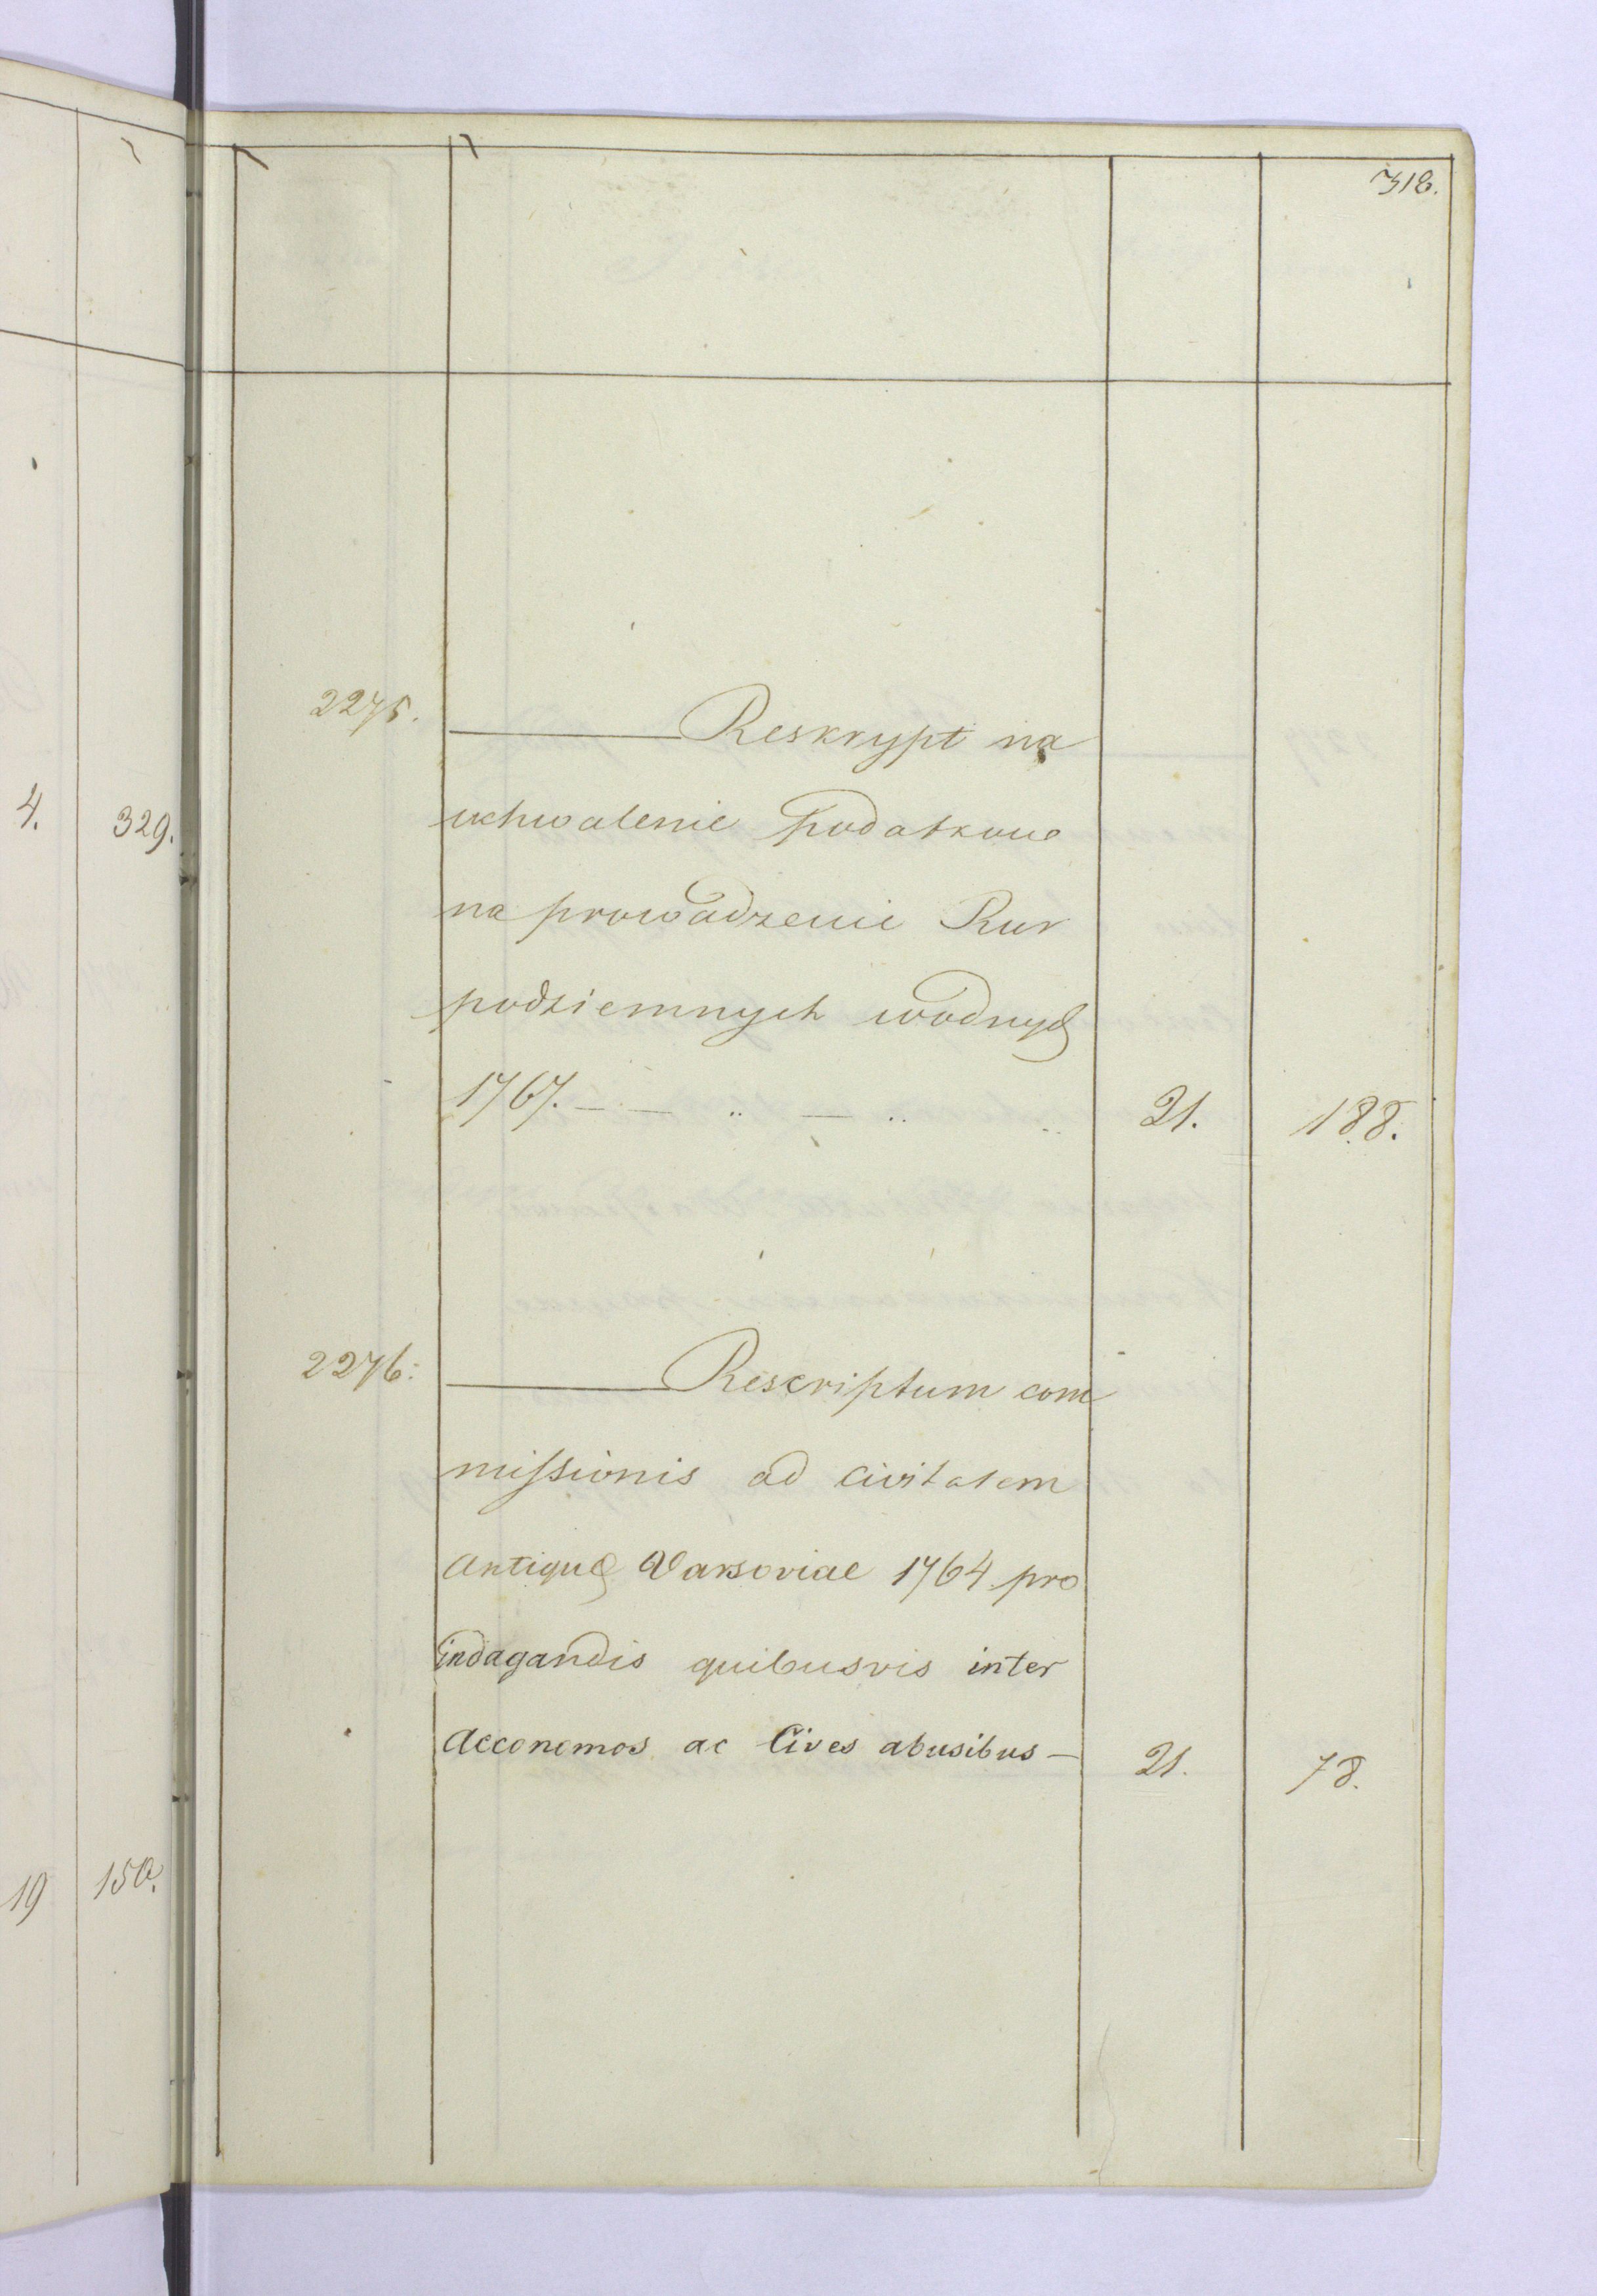 318.
4. 329.
19 150.
2275. Reskrypt na
uchwalenie Podatkowe
na prowadzenie Rur
podziemnych wodnych
1767. — — .. — .. .. 21. 188.
2276: Rescriptum com
missionis ad civitatem
Antiquae Varsoviae 1764 pro
indagandis quibusvis inter
Aeconomos ac Cives abusibus — 21. 78.